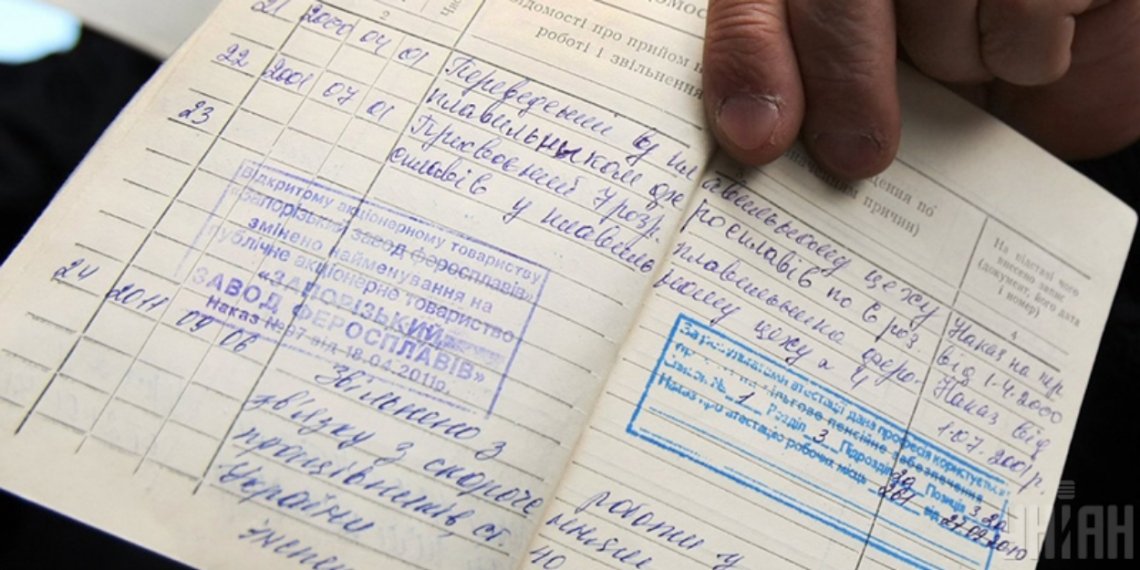 21 2000 04 01
Відомості про прийом н
роботі і звільнення
Переведений у пл авильному цеху
плавильником фе росплавів по 6 роз.
22 2001 07 01 Присвоєний 7 розр. плавильника феро-
сплавів у плавиль ному цеху
Наказ на пер
від 1.4.2000
Наказ від
1.07.2001р.
ведення по
причини)
На підставі чого
внесено запис
(документ, його дата
і номер)
2
4
23
Відкритому акціонерному товариству
«Запорізький завод феросплавів»
змінено найменування на
публічне акціонерне товариство
«ЗАПОРІЗЬКИЙ
ЗАВОД ФЕРОСПЛАВІВ»
Наказ №97 від 18.04.2011р.
За результатами атестації дана професія користується
пільгове пенсійне забезпечення
Список № 1 Розділ 3 Підрозділ Позиція
Наказ про атестацію робочих місць
24 2011 09 06 Звільнено з роботи у
звязку з скороче нням
працівників ст 40
України
УНІАН